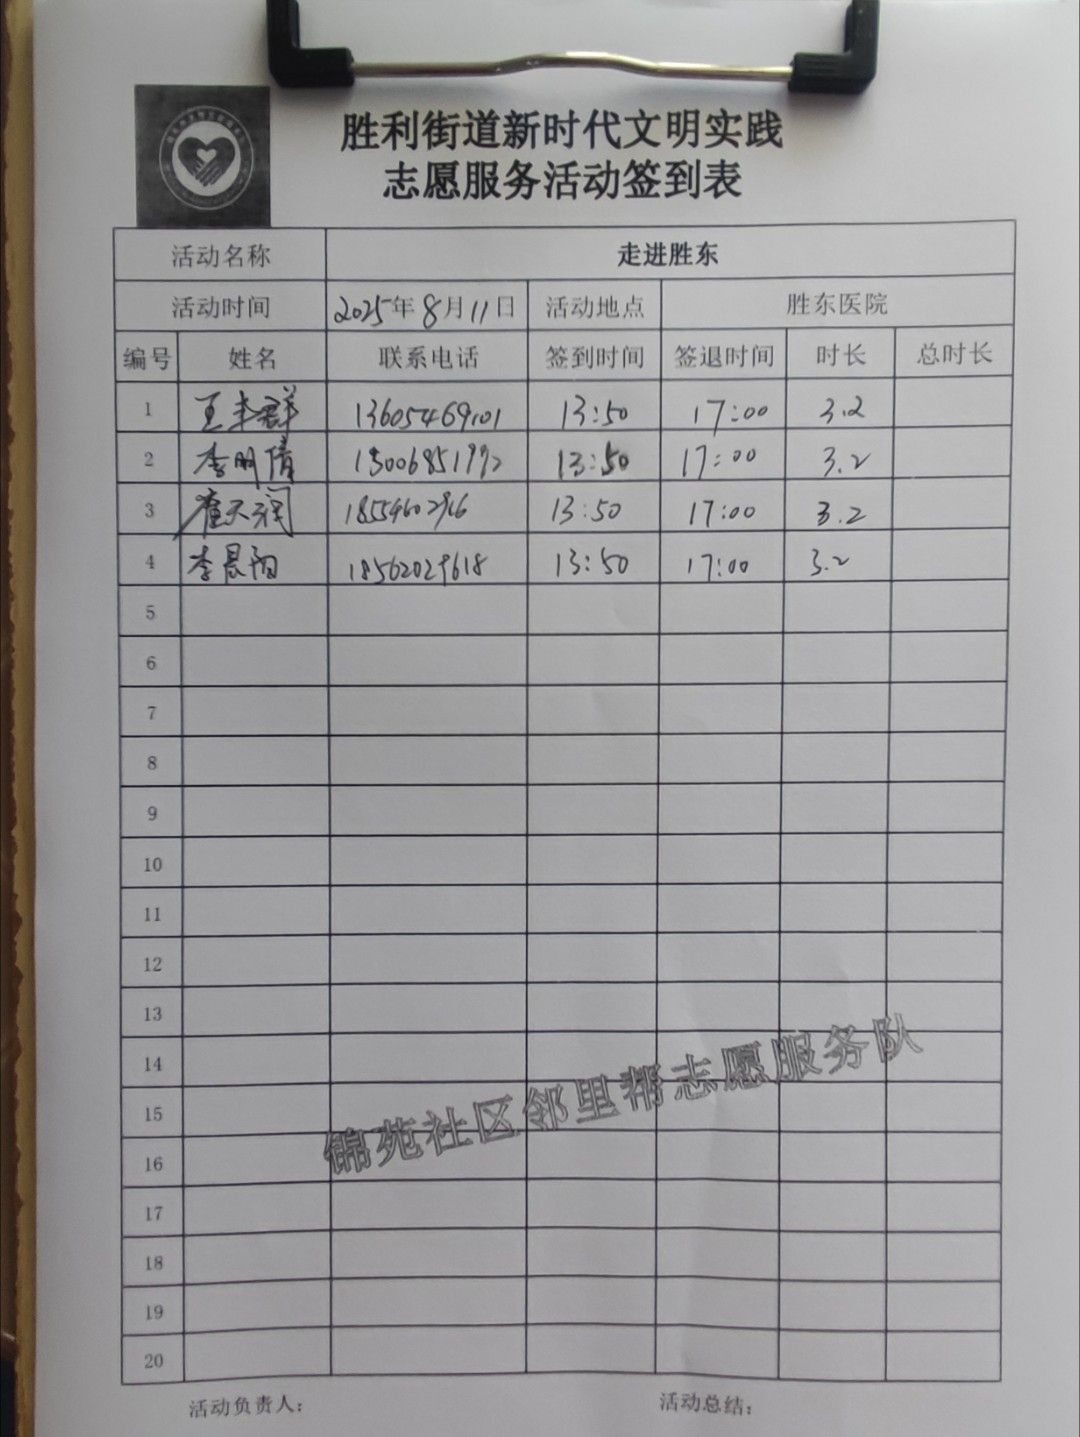 胜利街道新时代文明实践
志愿服务活动签到表
活动名称 走进胜东
活动时间 2025年8月11日 活动地点 胜东医院
编号 姓名 联系电话 签到时间 签退时间 时长 总时长
1 王丰群 13605469101 13:50 17:00 3.2
2 李明倩 15006851992 13:50 17:00 3.2
3 天润 13:50 17:00 3.2
4 李晨阳 18562029618 13:50 17:00 3.2
5
6
7
8
9
10
11
12
13
14
15
16
17
18
19
20
锦苑社区邻里帮志愿服务队
活动负责人： 活动总结：